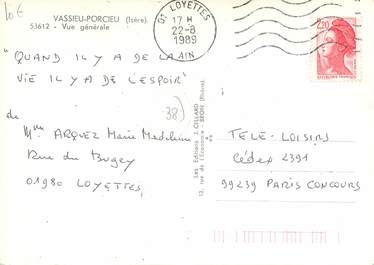 10 €
VASSIEU-PORCIEU (Isère).
53612 - Vue générale
01 LOYETTES
17 H
22-8
1989
AIN
2,20
"QUAND IL Y A DE LA
VIE IL Y A DE L'ESPOIR"
38)
de
Mme ARQUEZ Marie Madeleine
Rue du Bugey
01980 LOYETTES
Les Editions J. CELLARD
12, rue de l'Economie - BRON (Rhône)
TELE-LOISIRS
Cédex 2391
99239 PARIS CONCOURS